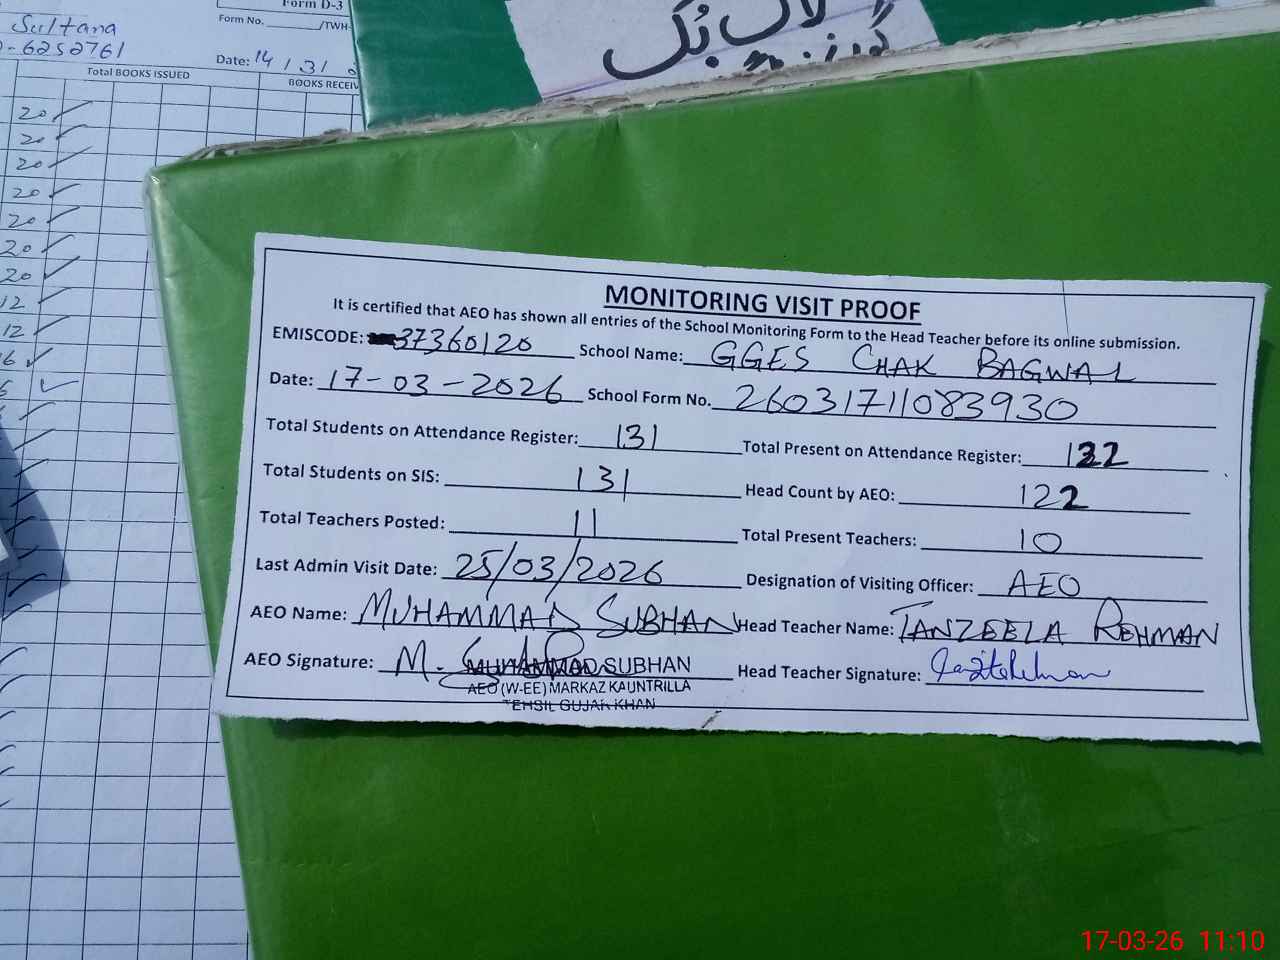 Form D-3
Form No. /TWH-
Sultana
-6252761
Date: 14 / 3 1
Total BOOKS ISSUED
BOOKS RECEIV
20
20
20
20
20
20
20
12
12
16
MONITORING VISIT PROOF
It is certified that AEO has shown all entries of the School Monitoring Form to the Head Teacher before its online submission.
EMISCODE: 37360120 School Name: GGES CHAK BAGWAL
Date: 17-03-2026 School Form No. 26031711083930
Total Students on Attendance Register: 131 Total Present on Attendance Register: 122
Total Students on SIS: 131 Head Count by AEO: 122
Total Teachers Posted: 11 Total Present Teachers: 10
Last Admin Visit Date: 25/03/2026 Designation of Visiting Officer: AEO
AEO Name: MUHAMMAD SUBHAN Head Teacher Name: TANZEELA REHMAN
AEO Signature: M. Head Teacher Signature:
MUHAMMAD SUBHAN
AEO (W-EE) MARKAZ KAUNTRILLA
TEHSIL GUJAR KHAN
17-03-26 11:10